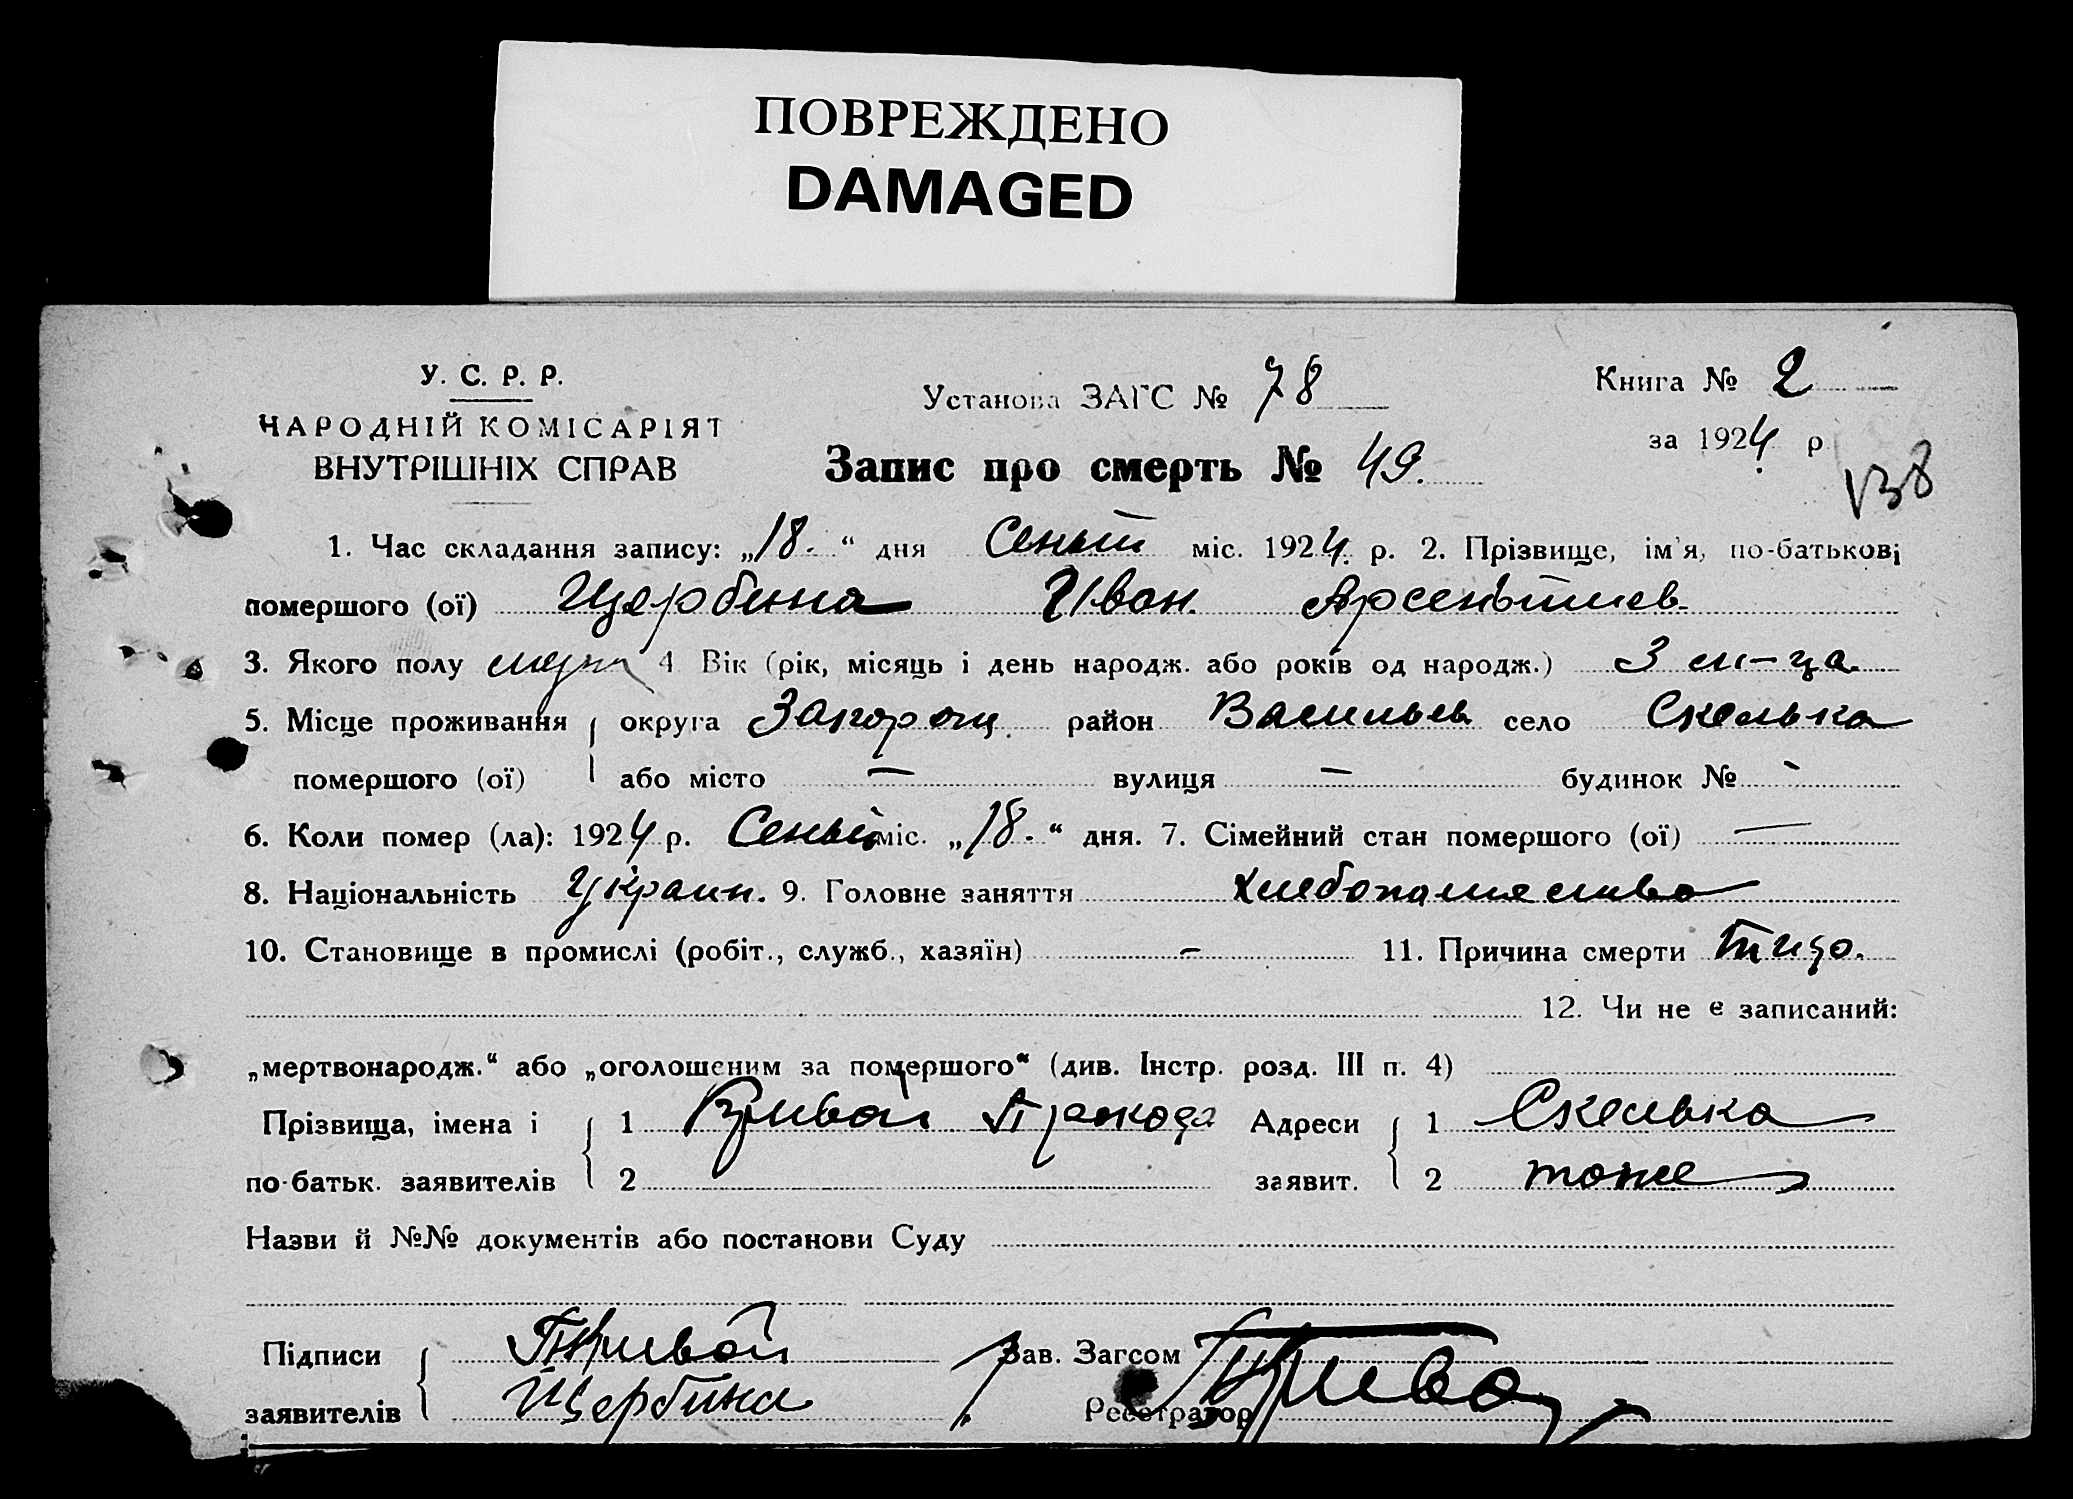 ПОВРЕЖДЕНО
DAMAGED
У. С. Р. Р.
НАРОДНІЙ КОМІСАРІЯТ
ВНУТРІШНІХ СПРАВ
Установа ЗАГС № 78
Книга № 2
за 1924 р.
138
Запис про смерть № 49.
1. Час складання запису: „18.“ дня міс. 1924. р. 2. Прізвище, ім'я, по-батькові
помершого (ої) Щербина Иван Арсеньтиев
3. Якого полу муж 4 Вік (рік, місяць і день народж. або років од народж.) 3 м-ца.
5. Місце проживання округа Запорож. район Васильев село Скелька
помершого (ої) або місто — вулиця — будинок № -
6. Коли помер (ла): 1924 р. міс. „18.“ дня. 7. Сімейний стан помершого (ої) —
8. Національність Украин. 9. Головне заняття хлебопашество
10. Становище в промислі (робіт., служб., хазяїн) - 11. Причина смерти
12. Чи не є записаний:
„мертвонародж.“ або „оголошеним за помершого“ (див. Інстр. розд. III п. 4)
Прізвища, імена і 1 Кривой Адреси 1 Скелька
по-батьк. заявителів 2 заявит. 2 тоже
Назви й №№ документів або постанови Суду
Підписи Кривой Зав. Загсом
заявителів Щербина Реєстратор